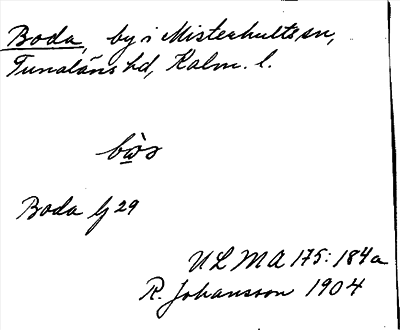 Boda, by i Misterhults sn,
Tunaläns hd, Kalm. l.
Boda lj 29
ULMA 175:184a
R. Johansson 1904